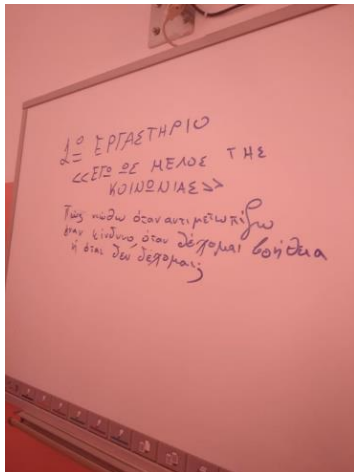 1ο ΕΡΓΑΣΤΗΡΙΟ
<<ΕΓΩ ΩΣ ΜΕΛΟΣ ΤΗΣ
ΚΟΙΝΩΝΙΑΣ>>
Πώς νιώθω όταν αντιμετωπίζω
έναν κίνδυνο, όταν δέχομαι βοήθεια
ή όταν δεν δέχομαι;